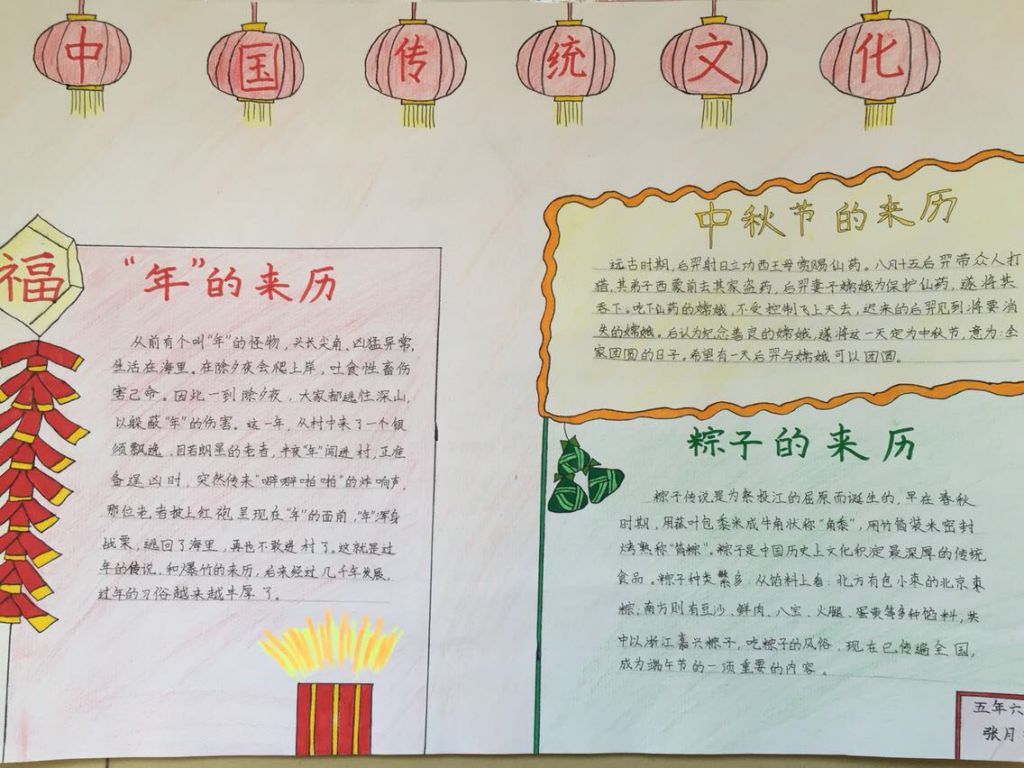 中国传统文化
福
“年”的来历
从前有个叫“年”的怪物，头长尖角、凶猛异常，
生活在海里。在除夕夜会爬上岸，吐食牲畜伤
害己命。因此一到除夕夜，大家都逃往深山，
以躲蔽“年”的伤害。这一年，从村中来了一个银
须飘逸，目若朗星的老者，半夜“年”闯进村，正准
备逞凶时，突然传来“噼噼啪啪”的炸响声，
那位老者披上红袍呈现在“年”的面前，“年”浑身
战栗，逃回了海里，再也不敢进村了。这就是过
年的传说，和爆竹的来历，后来经过几千年发展，
过年的习俗越来越丰厚了。
中秋节的来历
远古时期，后羿射日立功西王母赏赐仙药。八月十五后羿带众人打
猎，其弟子西蒙前去其家盗药，后羿妻子嫦娥为保护仙药，遂将其
吞下。吃下仙药的嫦娥，不受控制飞上天去，迟来的后羿见到将要消
失的嫦娥。后认为纪念善良的嫦娥，遂将这一天定为中秋节，意为：全
家团圆的日子。希望有一天后羿与嫦娥可以团圆。
粽子的来历
粽子传说是为祭投江的屈原而诞生的，早在春秋
时期，用菰叶包黍米成牛角状称“角黍”，用竹筒装米密封
烤熟称“筒粽”。粽子是中国历史上文化积淀最深厚的传统
食品。粽子种类繁多，从馅料上看：北方有包小枣的北京枣
粽；南方则有豆沙、鲜肉、八宝、火腿、蛋黄等多种馅料，其
中以浙江嘉兴粽子，吃粽子的风俗，现在已传遍全国，
成为端午节的一项重要的内容。
五年六
张月